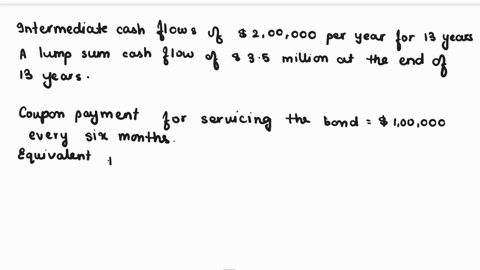 Intermediate cash flows of $ 2,00,000 per year for 13 years
A lump sum cash flow of $ 3.5 million at the end of
13 years.
Coupon payment for servicing the bond = $ 1,00,000
every six months.
Equivalent